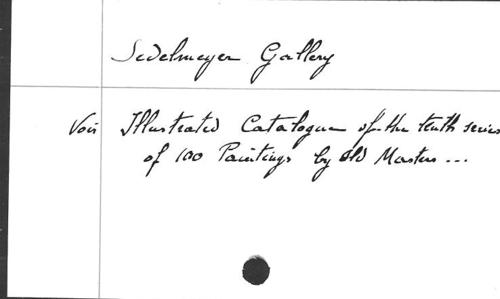 Sedelmeyer Gallery
Voir Illustrated Catalogue of the tenth series
of 100 Paintings by Old Masters ...